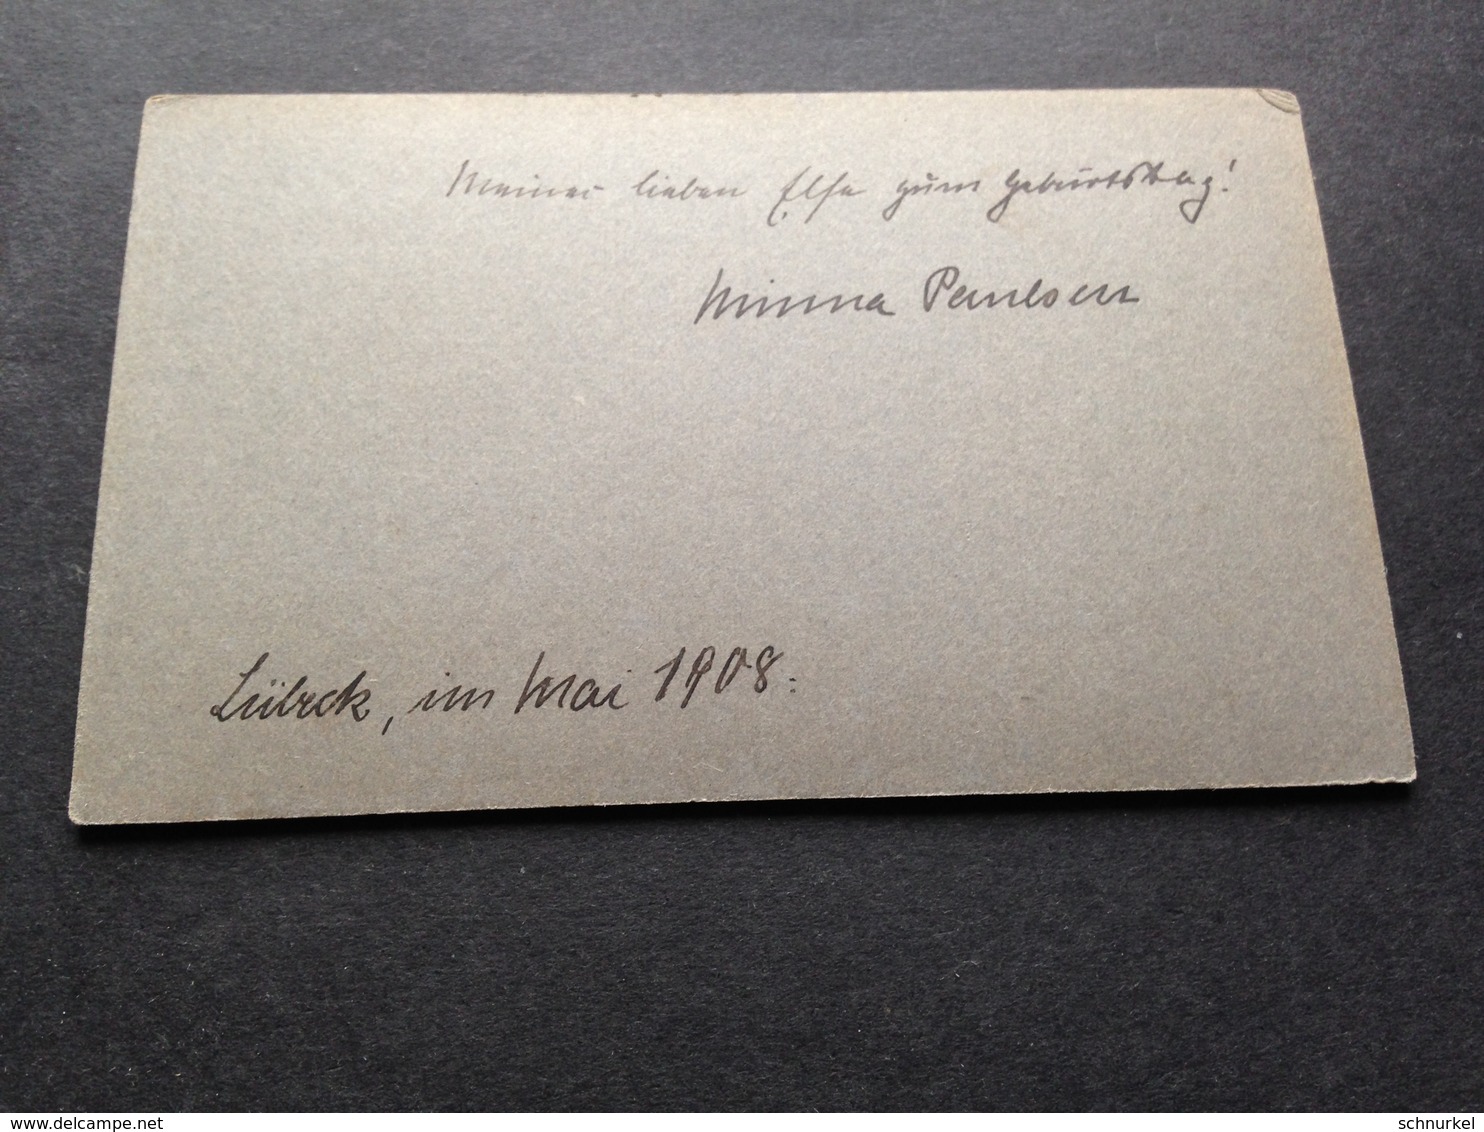 Meiner lieben Else zum Geburtstag!
Minna Paulsen
Lübeck, im Mai 1908.
delcampe.net
schnurkel